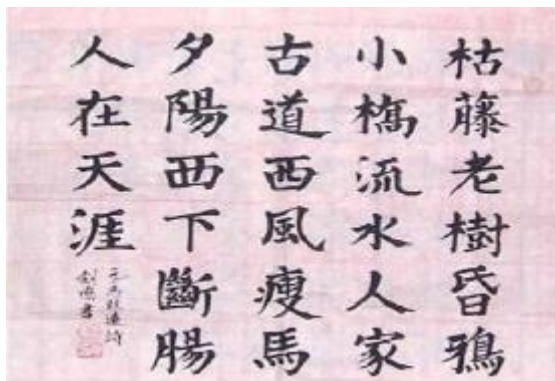 枯藤老樹昏鴉
小橋流水人家
古道西風瘦馬
夕陽西下斷腸
人在天涯